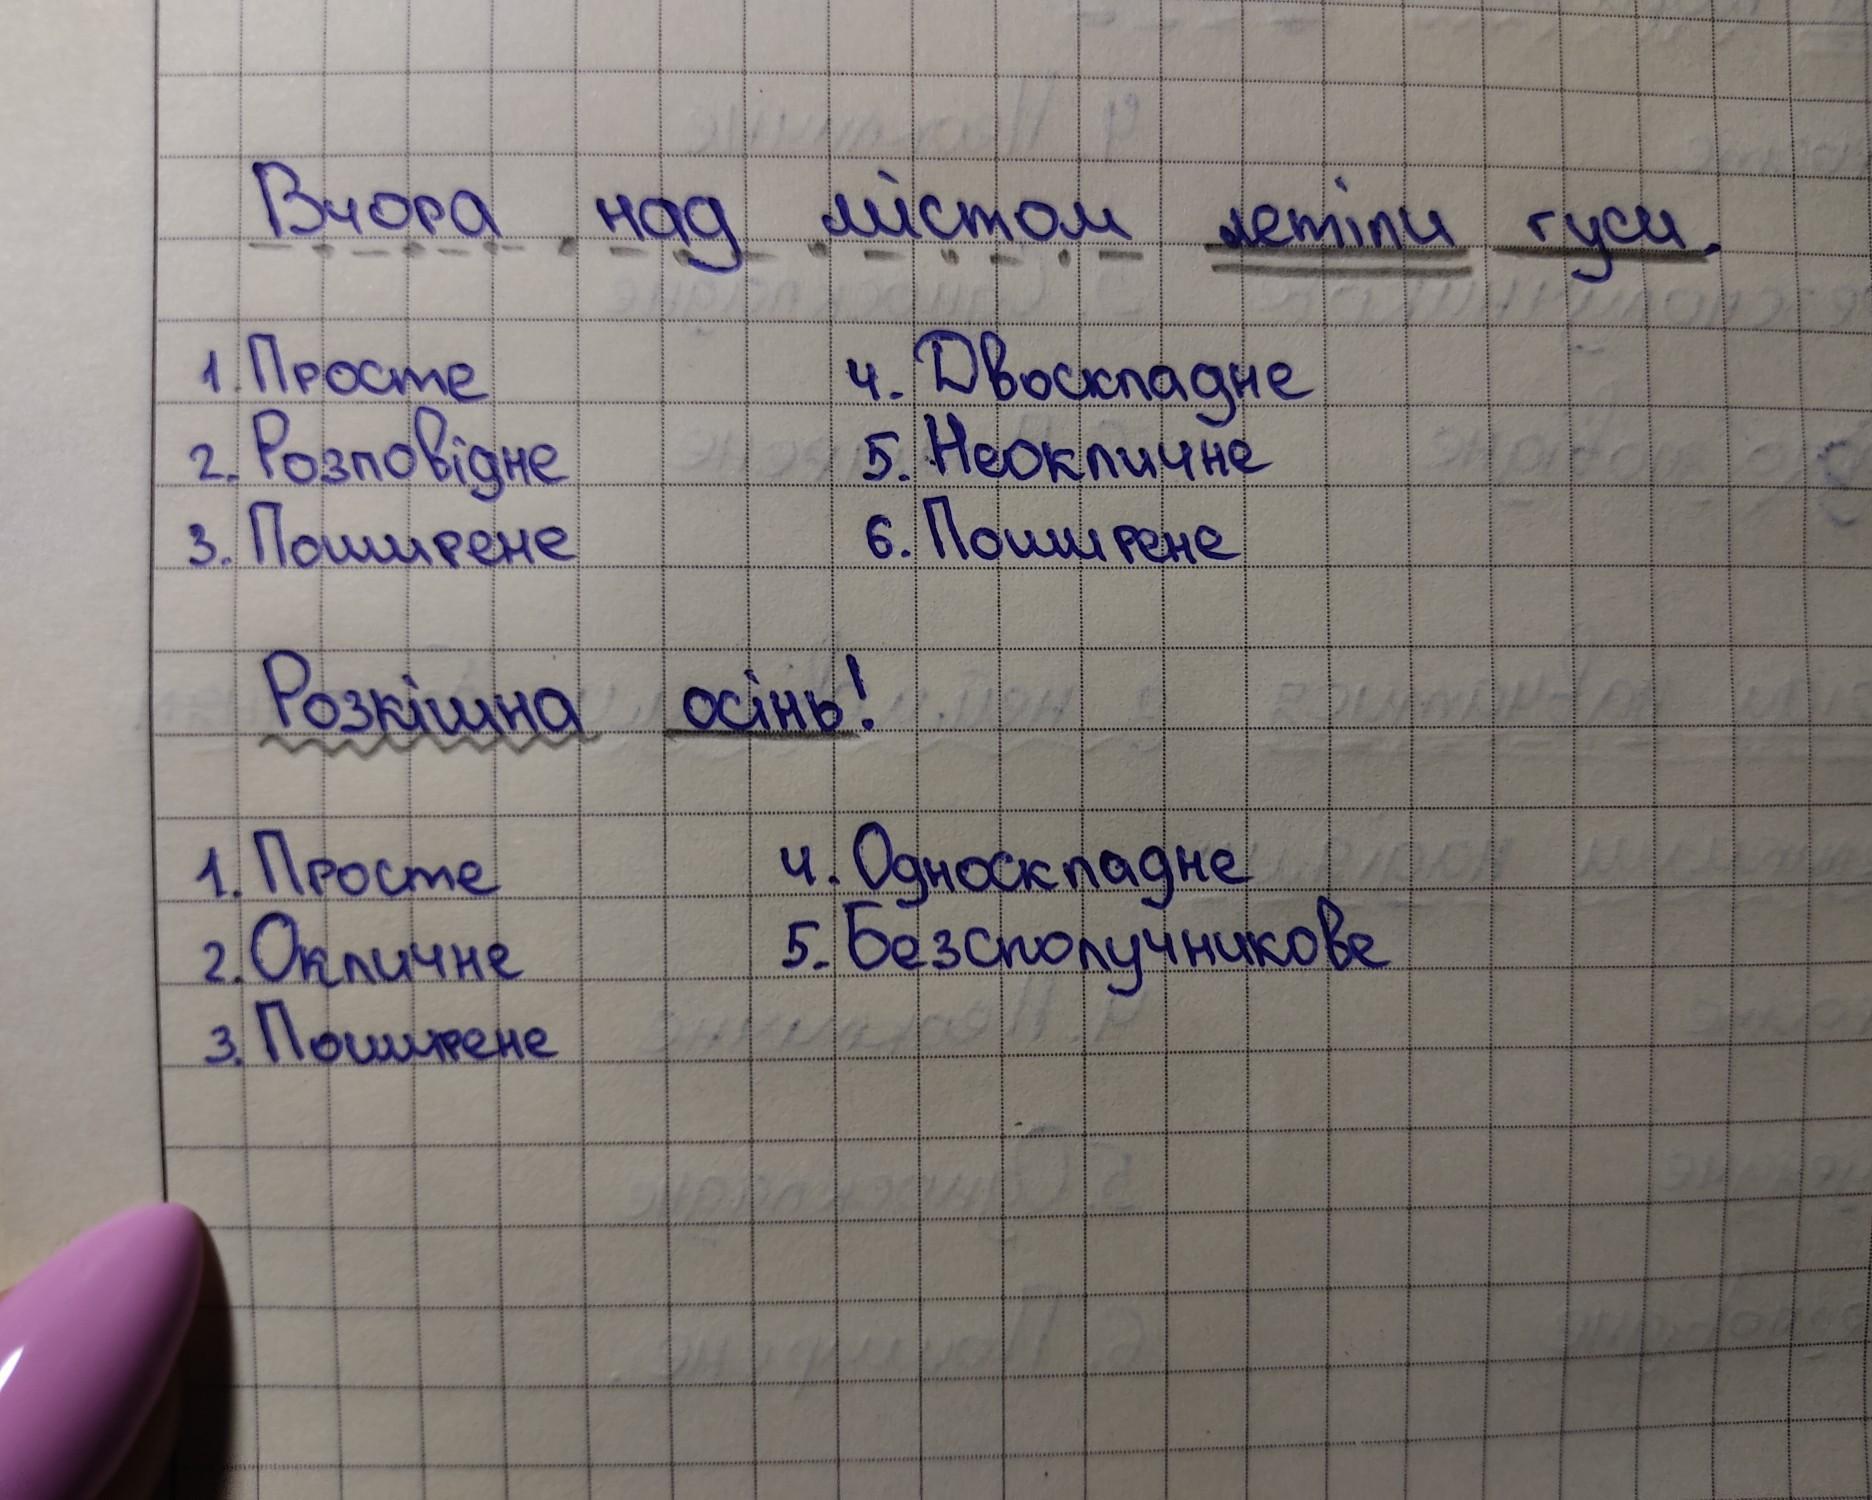 Вчора над містом летіли гуси.
1. Просте
2. Розповідне
3. Поширене
4. Двоскладне
5. Неокличне
6. Поширене
Розкішна осінь!
1. Просте
2. Окличне
3. Поширене
4. Односкладне
5. Безсполучникове